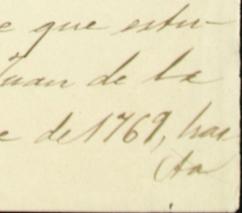 e que estu-
Juan de la
e de 1769, has
ta